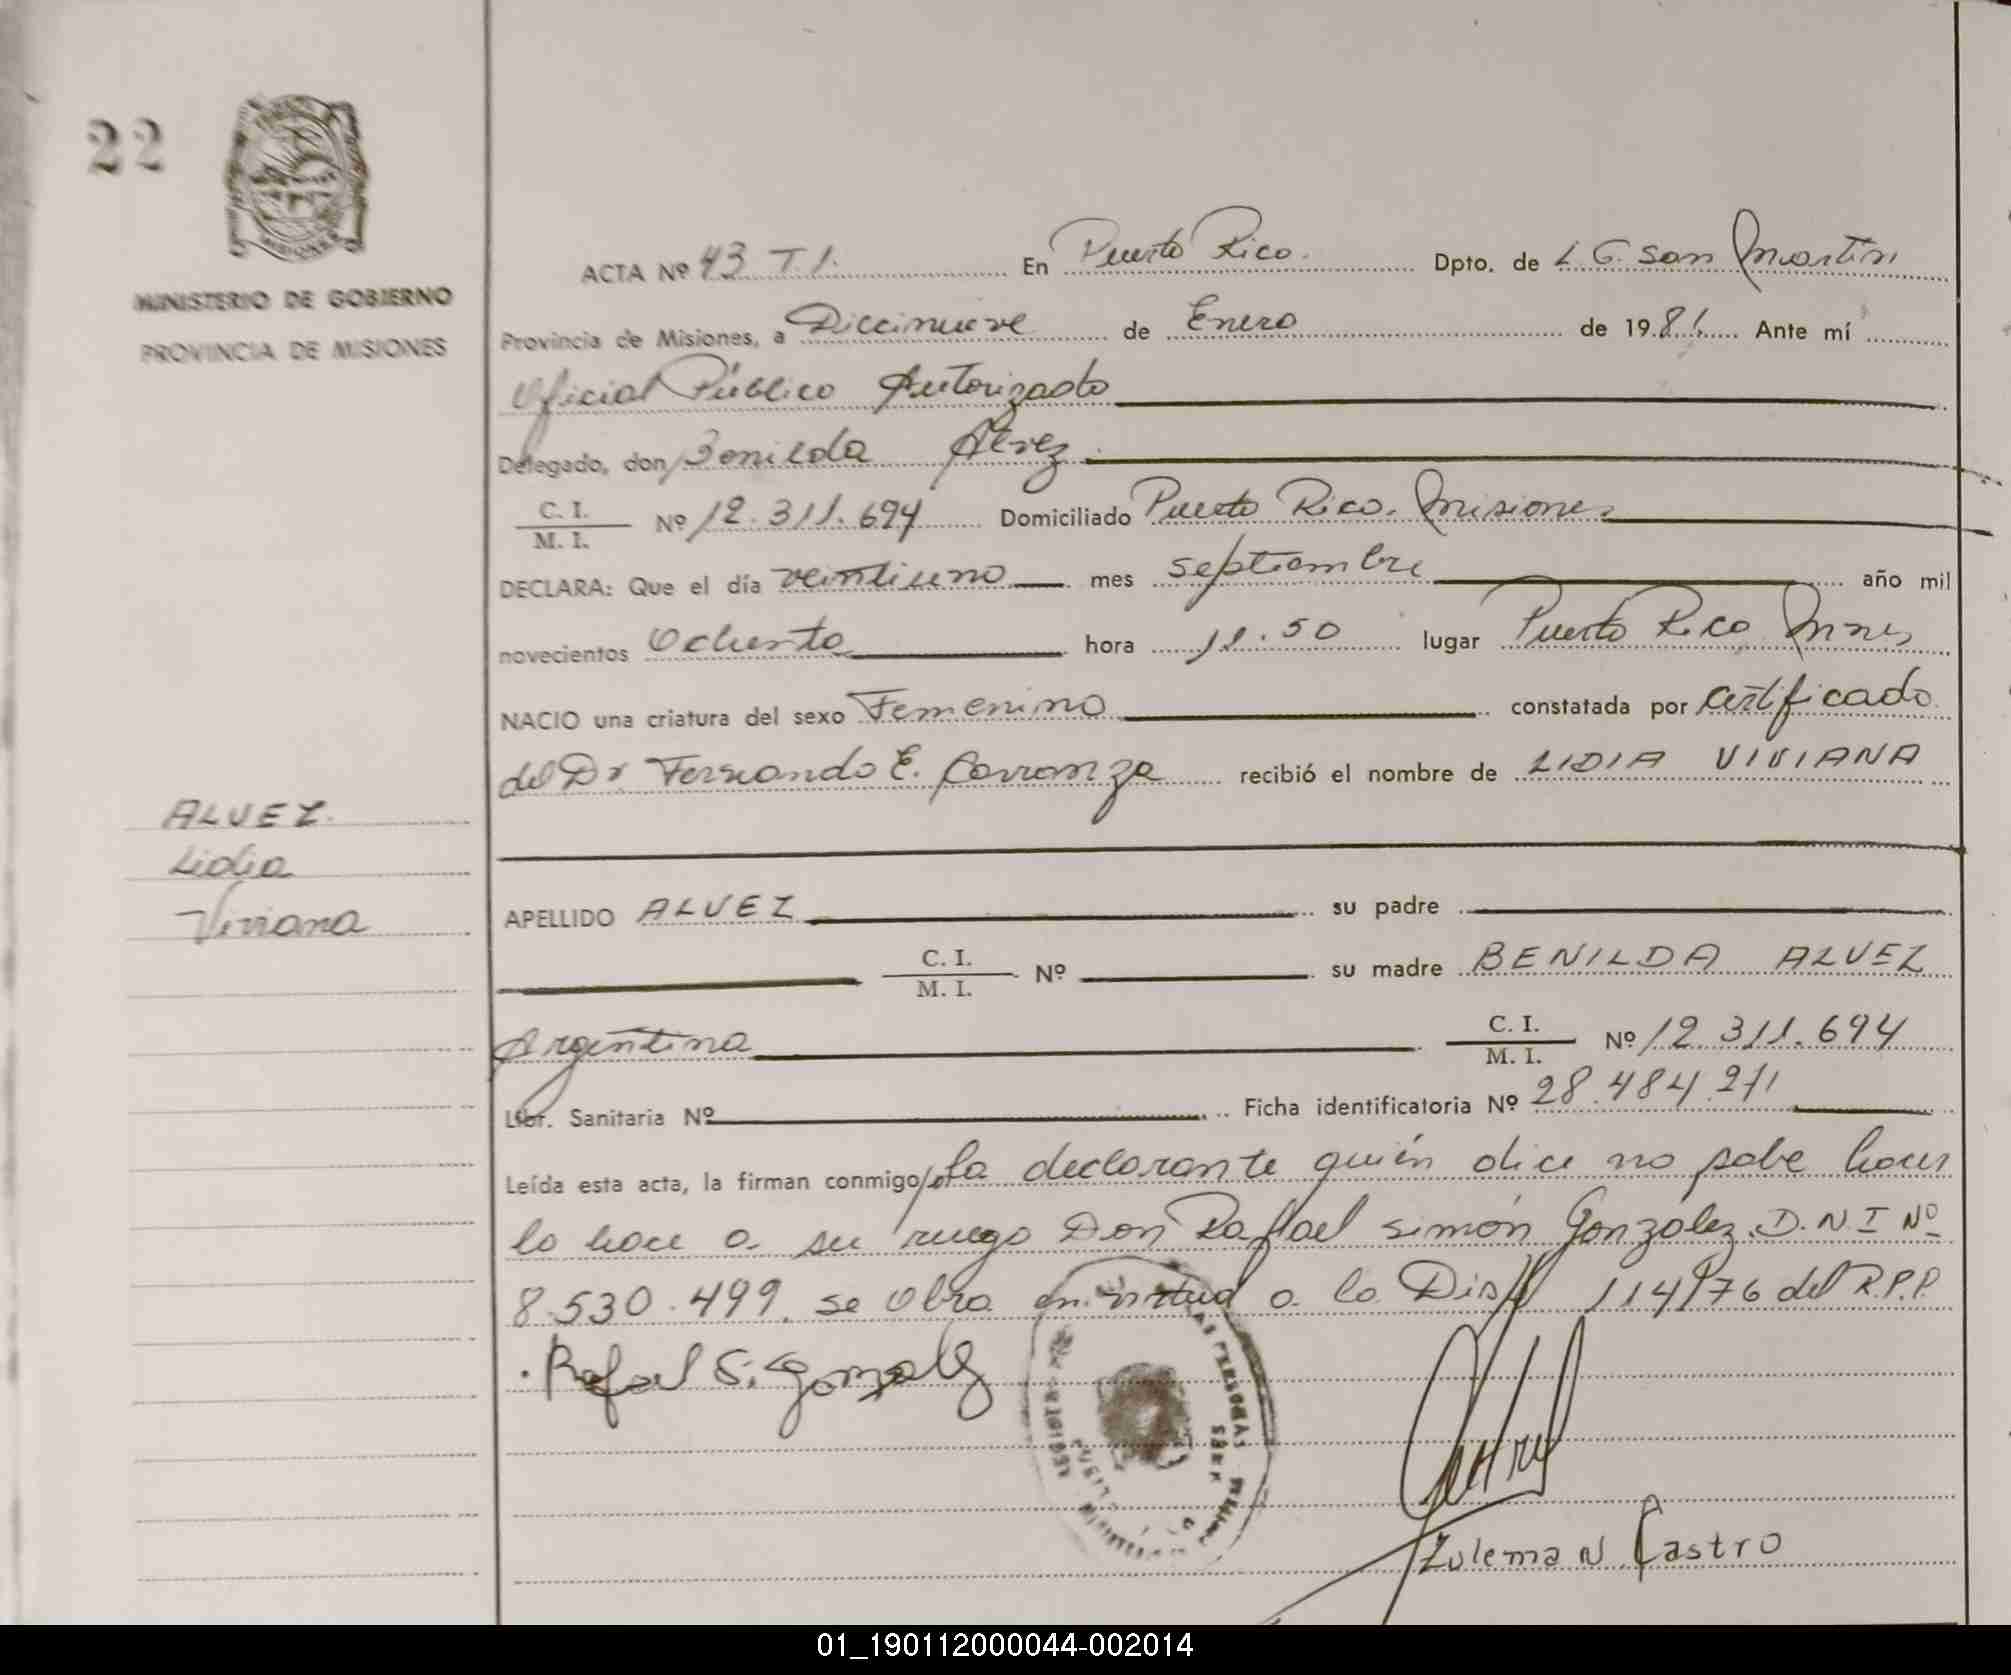 22
MINISTERIO DE GOBIERNO
PROVINCIA DE MISIONES
ACTA Nº 43 T.1. En Puerto Rico. Dpto. de L. G. San Martín
Provincia de Misiones, a Diecinueve de Enero de 1981. Ante mí
Oficial Público Autorizado
Delegado, don Benilda Alvez
C. I. / M. I. Nº 12.311.694 Domiciliado Puerto Rico. Misiones
DECLARA: Que el día veintiuno mes septiembre año mil
novecientos Ochenta hora 11.50 lugar Puerto Rico Mnes
NACIO una criatura del sexo Femenino constatada por certificado
del Dr Fernando E. Carranza recibió el nombre de LIDIA VIVIANA
ALVEZ.
Lidia
Viviana
APELLIDO ALVEZ su padre
C. I. / M. I. Nº su madre BENILDA ALVEZ
Argentina C. I. / M. I. Nº 12.311.694
Libr. Sanitaria Nº Ficha identificatoria Nº 28.484.211
Leída esta acta, la firman conmigo, la declarante quién dice no sabe hacer
lo hace a su ruego Don Rafael Simón González D.N.I Nº
8.530.499. se obra en virtud a la Disp 114/76 del R.P.P.
Rafael S. Gonzalez
Zulema N. Castro
01_190112000044-002014